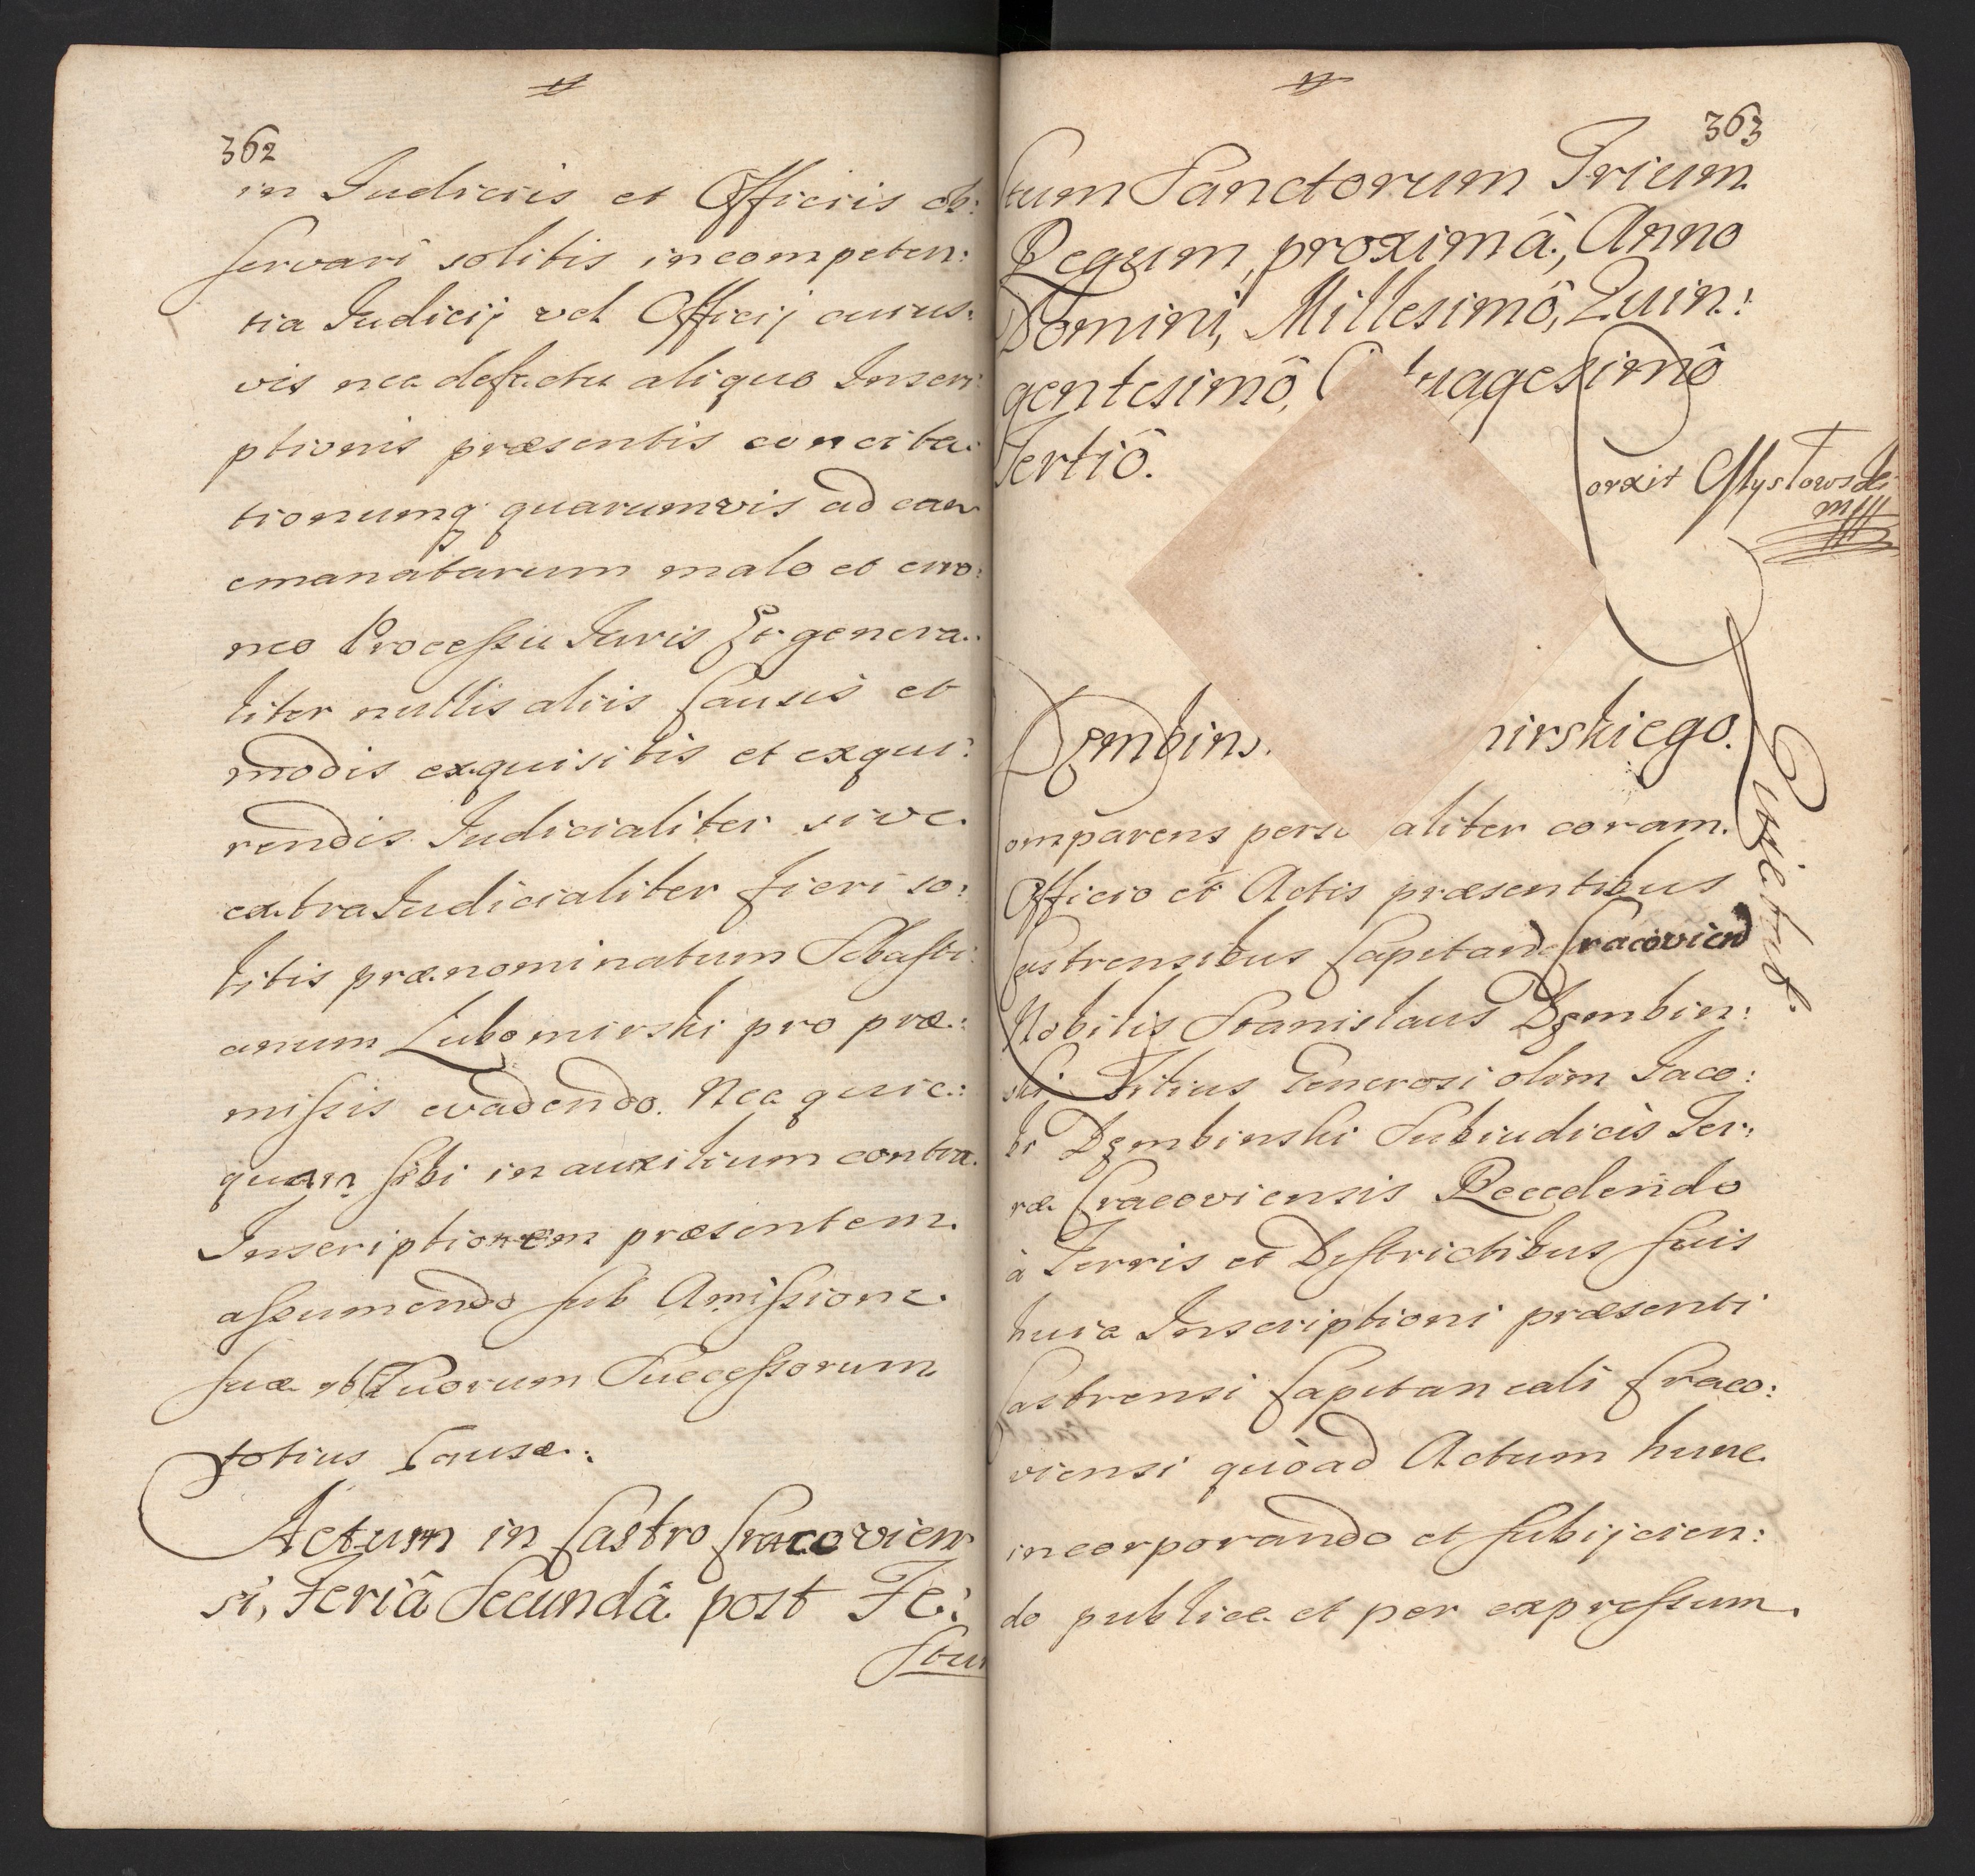 362
in Judiciis et Officiis ob:
servari solitis incompeten:
tia Judicij vel Officij cuius:
vis nec defectu aliquo Inscri:
ptionis præsentis concita:
tionumq quarumvis ad eam
emanatarum malo et erro:
neo Processu Iuris Et genera:
liter nullis aliis Causis et
modis exquisitis et exqui:
rendis Judicialiter sive
extraJudicialiter fieri so:
litis prænominatum Sebasti:
anum Lubomirski pro præ:
missis evadendo. Nec quic:
quam sibi in auxilium contra
Inscriptionem præsentem
assumendo sub Amissione
suæ et Suorum Successorum
totius Causæ:
Actum in Castro Cracovien
si, Feriâ Secundâ post Fe:
stum
363
stum Sanctorum Trium
Regum, proximâ, Anno
Domini, Millesimô, Quin:
gentesimô, uagesimô
Tertiô.
orxit Mystowski
mp
Dęmbins nirskiego.
omparens perso aliter coram
Officio et Actis præsentibus
Castrensibus Capitan Cracovien
Nobilis Stanislaus Dęmbin:
ski Filius Generosi olim Jaco:
bi Dęmbinski Subiudicis Ter:
ræ Cracoviensis Recedendo
à Terris et Districtibus suis
huic Inscriptioni præsenti
Castrensi Capitaneali Craco:
viensi quòad Actum hunc
incorporando et subijcien:
do publice et per expressum
Quietat